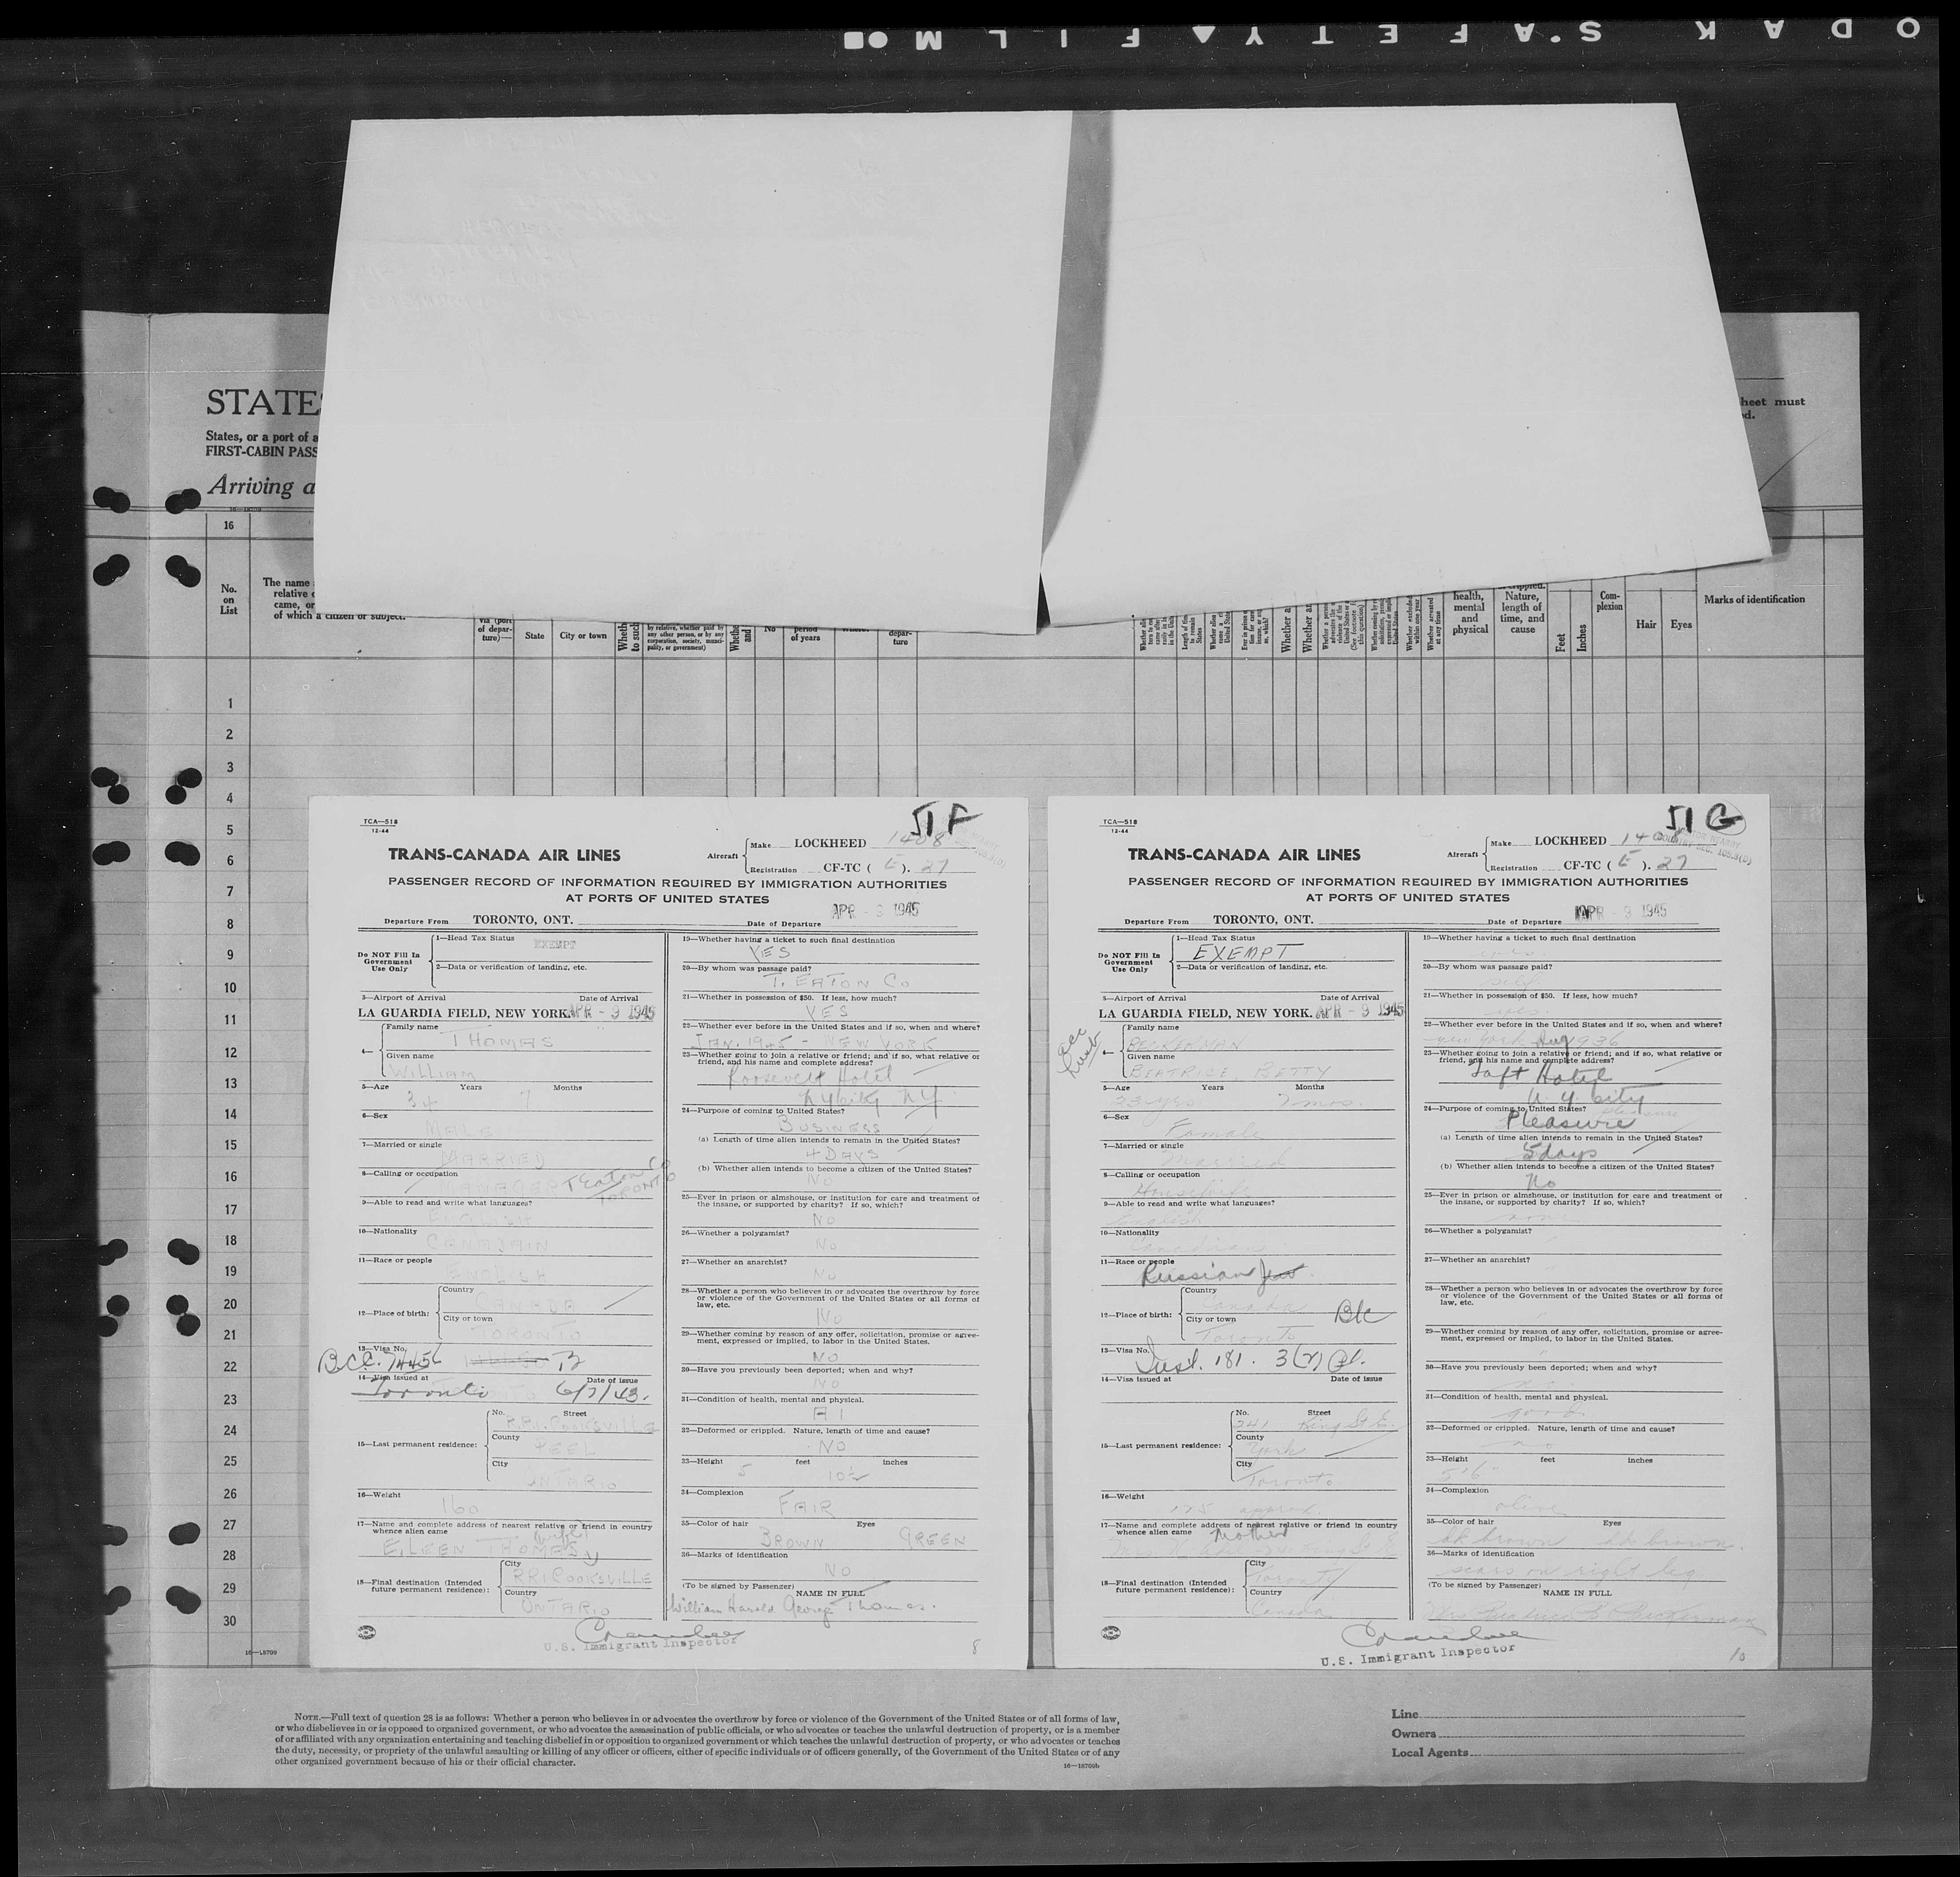 ODAK S'AFETY FILM
STATES
States, or a port of a
FIRST-CABIN PASS
Arriving a
heet must
d.
16
No.
on
List
The name
relative
came, or
of which a citizen or subject.
via (port
of depar-
ture)—
State
City or town
by relative, whether paid by
any other person, or by any
corporation, society, munici-
pality, or government)
No
period
of years
depar-
ture
health,
mental
and
physical
crippled.
Nature,
length of
time, and
cause
Feet
Inches
Com-
plexion
Hair
Eyes
Marks of identification
1
2
3
4
5
6
7
8
9
10
11
12
13
14
15
16
17
18
19
20
21
22
23
24
25
26
27
28
29
30
16—18709
TCA—518
12-44
51F
TRANS-CANADA AIR LINES
Aircraft
Make LOCKHEED 1408
Registration CF-TC ( E ). 27
PASSENGER RECORD OF INFORMATION REQUIRED BY IMMIGRATION AUTHORITIES
AT PORTS OF UNITED STATES
Departure From TORONTO, ONT. Date of Departure APR - 9 1945
Do NOT Fill In
Government
Use Only
1—Head Tax Status EXEMPT
2—Data or verification of landing, etc.
3—Airport of Arrival Date of Arrival
LA GUARDIA FIELD, NEW YORK. APR - 9 1945
4—
Family name
THOMAS
Given name
WILLIAM
5—Age Years Months
34 7
6—Sex
MALE
7—Married or single
MARRIED
8—Calling or occupation
MANAGER T Eaton Co
TORONTO
9—Able to read and write what languages?
ENGLISH
10—Nationality
CANADAIN
11—Race or people
ENGLISH
12—Place of birth:
Country
CANADA
City or town
TORONTO
13—Visa No.
B.C.C. 74456
14—Visa issued at Date of issue
Toronto 6/7/43.
15—Last permanent residence:
No. Street
R.R.1. COOKSVILLE
County
PEEL
City
ONTARIO
16—Weight
160
17—Name and complete address of nearest relative or friend in country
whence alien came (wife)
EILEEN THOMAS
18—Final destination (Intended
future permanent residence):
City
RR1 COOKSVILLE
Country
ONTARIO
19—Whether having a ticket to such final destination
YES
20—By whom was passage paid?
T. EATON CO
21—Whether in possession of $50. If less, how much?
YES
22—Whether ever before in the United States and if so, when and where?
JAN. 1945 - NEW YORK
23—Whether going to join a relative or friend; and if so, what relative or
friend, and his name and complete address?
Roosevelt Hotel
N Y City N.Y.
24—Purpose of coming to United States?
BUSINESS
(a) Length of time alien intends to remain in the United States?
4 DAYS
(b) Whether alien intends to become a citizen of the United States?
NO
25—Ever in prison or almshouse, or institution for care and treatment of
the insane, or supported by charity? If so, which?
NO
26—Whether a polygamist?
NO
27—Whether an anarchist?
NO
28—Whether a person who believes in or advocates the overthrow by force
or violence of the Government of the United States or all forms of
law, etc.
NO
29—Whether coming by reason of any offer, solicitation, promise or agree-
ment, expressed or implied, to labor in the United States.
NO
30—Have you previously been deported; when and why?
NO
31—Condition of health, mental and physical.
A1
32—Deformed or crippled. Nature, length of time and cause?
NO
33—Height feet inches
5 10½
34—Complexion
FAIR
35—Color of hair Eyes
BROWN GREEN
36—Marks of identification
NO
(To be signed by Passenger) NAME IN FULL
William Harold George Thomas.
U.S. Immigrant Inspector
8
TCA—518
12-44
51G
TRANS-CANADA AIR LINES
Aircraft
Make LOCKHEED 1408
Registration CF-TC ( E ). 27
PASSENGER RECORD OF INFORMATION REQUIRED BY IMMIGRATION AUTHORITIES
AT PORTS OF UNITED STATES
Departure From TORONTO, ONT. Date of Departure APR - 9 1945
Do NOT Fill In
Government
Use Only
1—Head Tax Status
EXEMPT
2—Data or verification of landing, etc.
3—Airport of Arrival Date of Arrival
LA GUARDIA FIELD, NEW YORK. APR - 9 1945
4—
Family name
BECKERMAN
Given name
BEATRICE BETTY
5—Age Years Months
23 yrs. 7 mos.
6—Sex
Female
7—Married or single
Married
8—Calling or occupation
Housewife
9—Able to read and write what languages?
English
10—Nationality
Canadian
11—Race or people
Russian Jew.
12—Place of birth:
Country
Canada B/c
City or town
Toronto
13—Visa No.
Inst. 181. 3(2)
14—Visa issued at Date of issue
15—Last permanent residence:
No. Street
241 King St E.
County
York
City
Toronto
16—Weight
125 approx.
17—Name and complete address of nearest relative or friend in country
whence alien came Mother
18—Final destination (Intended
future permanent residence):
City
Toronto
Country
Canada
19—Whether having a ticket to such final destination
yes
20—By whom was passage paid?
self
21—Whether in possession of $50. If less, how much?
yes.
22—Whether ever before in the United States and if so, when and where?
New York Aug 1936
23—Whether going to join a relative or friend; and if so, what relative or
friend, and his name and complete address?
Taft Hotel
N. Y. City
24—Purpose of coming to United States? pleasure
Pleasure
(a) Length of time alien intends to remain in the United States?
5 days
(b) Whether alien intends to become a citizen of the United States?
No
25—Ever in prison or almshouse, or institution for care and treatment of
the insane, or supported by charity? If so, which?
26—Whether a polygamist?
27—Whether an anarchist?
28—Whether a person who believes in or advocates the overthrow by force
or violence of the Government of the United States or all forms of
law, etc.
29—Whether coming by reason of any offer, solicitation, promise or agree-
ment, expressed or implied, to labor in the United States.
30—Have you previously been deported; when and why?
31—Condition of health, mental and physical.
good
32—Deformed or crippled. Nature, length of time and cause?
no
33—Height feet inches
5' 6"
34—Complexion
olive
35—Color of hair Eyes
dk brown dk brown.
36—Marks of identification
scars on right leg
(To be signed by Passenger) NAME IN FULL
Mrs Beatrice B Beckerman
U.S. Immigrant Inspector
10
NOTE.—Full text of question 28 is as follows: Whether a person who believes in or advocates the overthrow by force or violence of the Government of the United States or of all forms of law,
or who disbelieves in or is opposed to organized government, or who advocates the assassination of public officials, or who advocates or teaches the unlawful destruction of property, or is a member
of or affiliated with any organization entertaining and teaching disbelief in or opposition to organized government or which teaches the unlawful destruction of property, or who advocates or teaches
the duty, necessity, or propriety of the unlawful assaulting or killing of any officer or officers, either of specific individuals or of officers generally, of the Government of the United States or of any
other organized government because of his or their official character.
16—18709b
Line
Owners
Local Agents